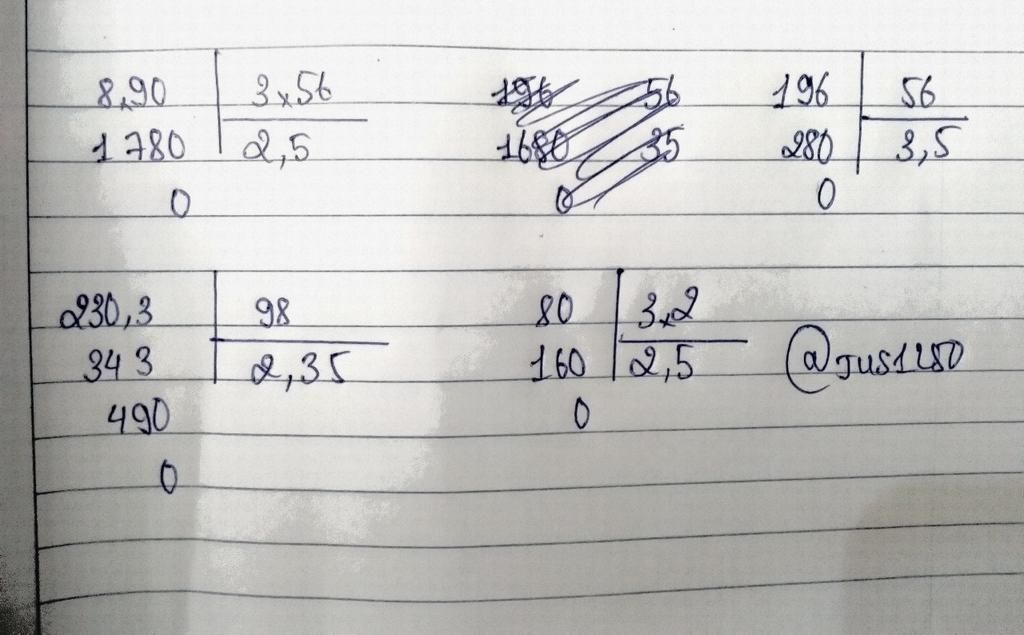 8,90 3,56 196 56 196 56
1780 2,5 1680 35 280 3,5
0 0 0
230,3 98 80 3,2
343 2,35 160 2,5 @JUS1250
490 0
0